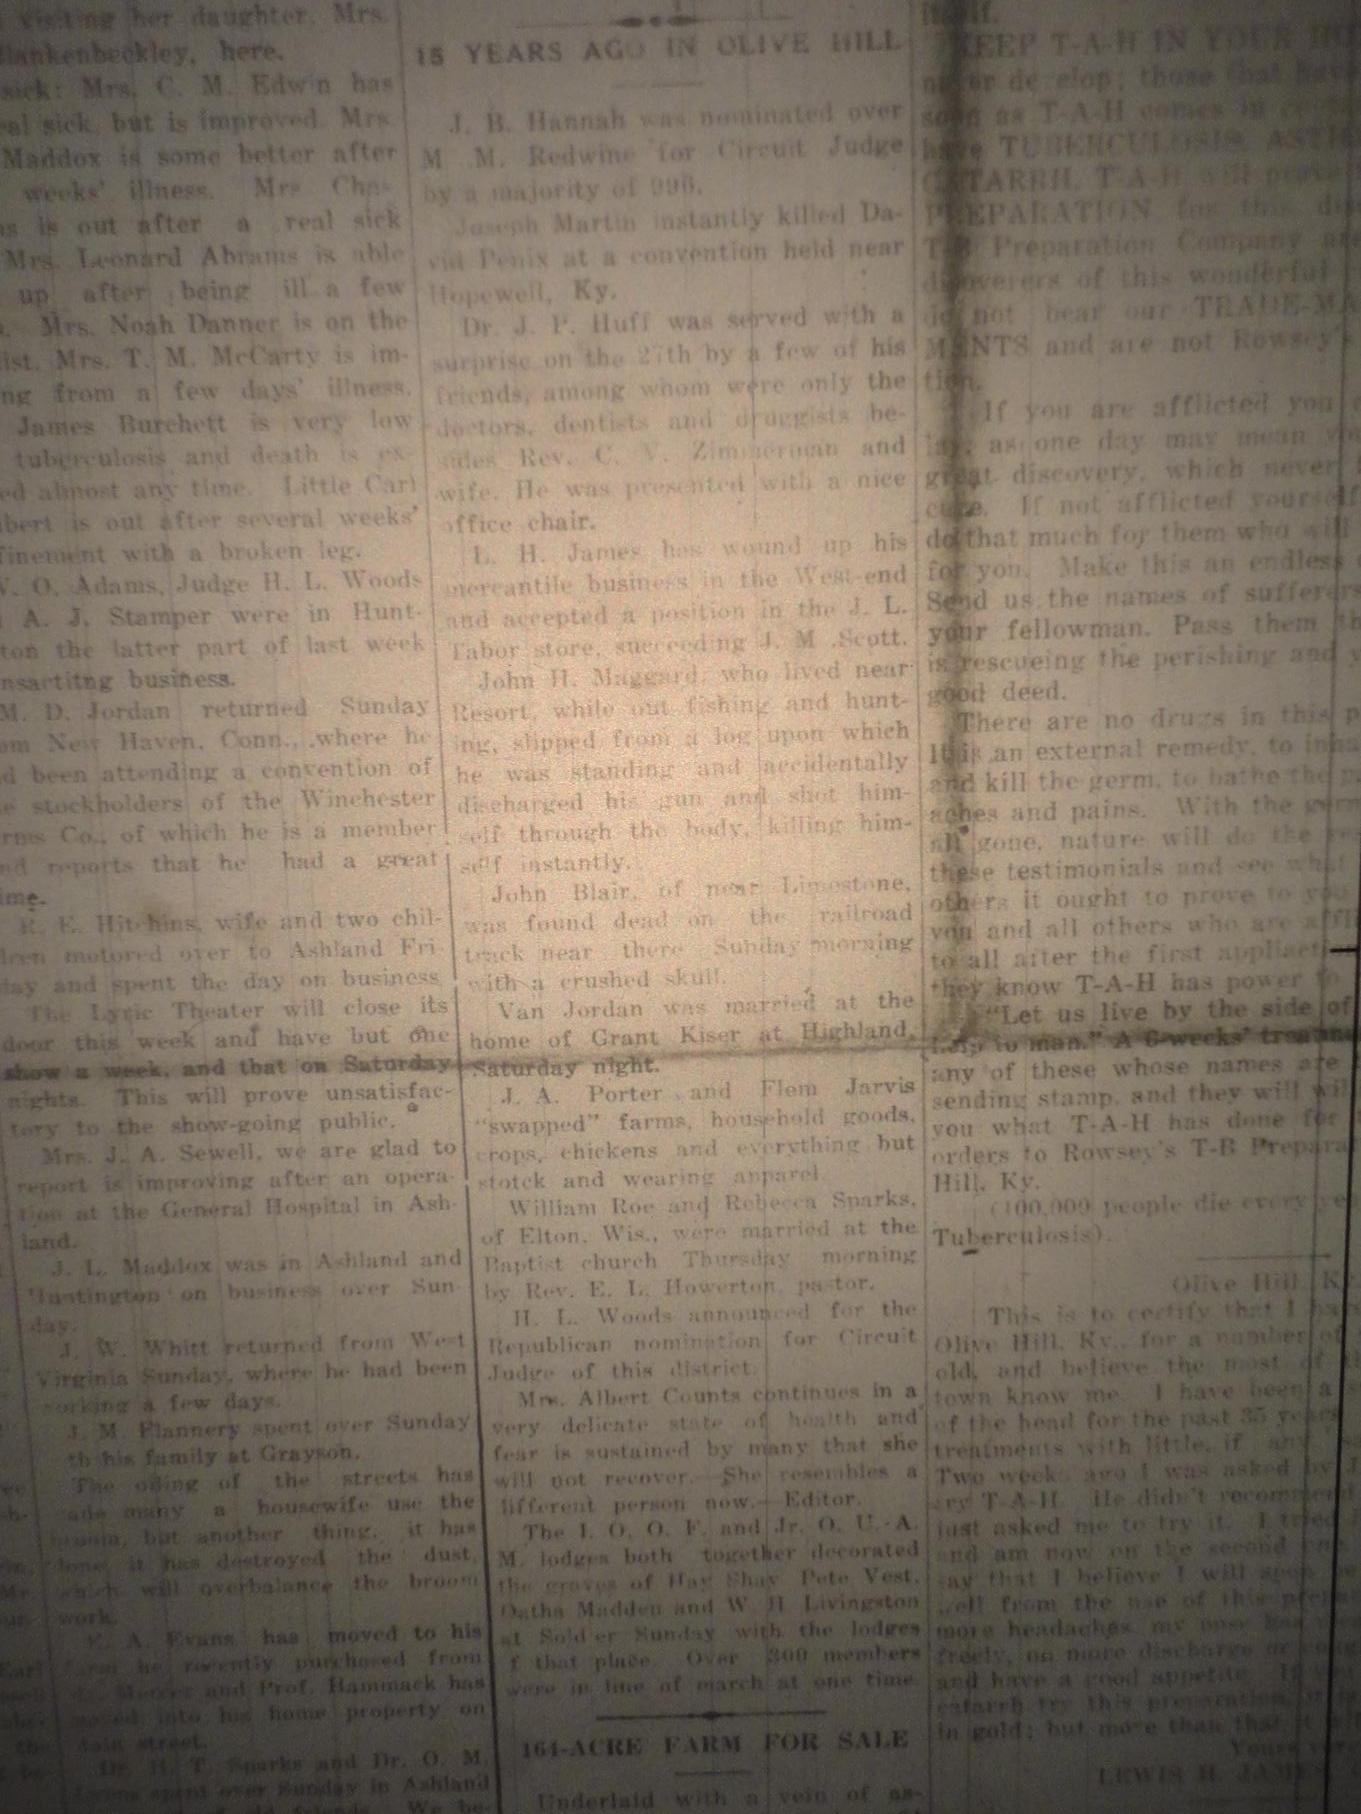 visiting her daughter, Mrs.
Blankenbeckley, here.
sick: Mrs. C. M. Edwin has
sick, but is improved. Mrs.
Maddox is some better after
weeks' illness. Mrs Chas
is out after a real sick
Mrs. Leonard Abrams is able
up after being ill a few
Mrs. Noah Danner is on the
list. Mrs. T. M. McCarty is im-
ng from a few days' illness.
James Burchett is very low
tuberculosis and death is ex-
ed almost any time. Little Carl
bert is out after several weeks'
finement with a broken leg.
W. O. Adams, Judge H. L. Woods
A. J. Stamper were in Hunt-
ton the latter part of last week
nsactitng business.
M. D. Jordan returned Sunday
om New Haven, Conn., where he
d been attending a convention of
e stockholders of the Winchester
rms Co., of which he is a member
nd reports that he had a great
ime.
R. E. Hitchins, wife and two chil-
dren motored over to Ashland Fri-
day and spent the day on business
The Lyric Theater will close its
door this week and have but one
show a week, and that on Saturday
nights. This will prove unsatisfac-
tory to the show-going public.
Mrs. J. A. Sewell, we are glad to
report is improving after an opera-
tion at the General Hospital in Ash-
land.
J. L. Maddox was in Ashland and
Huntington on business over Sun-
day.
J. W. Whitt returned from West
Virginia Sunday, where he had been
working a few days.
J. M. Flannery spent over Sunday
th his family at Grayson.
The oiling of the streets has
ade many a housewife use the
broom, but another thing, it has
done, it has destroyed the dust,
which will overbalance the broom
work.
E. A. Evans has moved to his
farm he recently purchased from
Mercer and Prof. Hammack has
moved into his home property on
Main street.
Dr. H. T. Sparks and Dr. O. M.
Lyons spent over Sunday in Ashland
We be-
15 YEARS AGO IN OLIVE HILL
J. B. Hannah was nominated over
M. M. Redwine for Circuit Judge
by a majority of 996.
Joseph Martin instantly killed Da-
vid Penix at a convention held near
Hopewell, Ky.
Dr. J. P. Huff was served with a
surprise on the 27th by a few of his
friends, among whom were only the
doctors, dentists and druggists be-
sides Rev. C. V. Zimmerman and
wife. He was presented with a nice
office chair.
L. H. James has wound up his
mercantile business in the West-end
and accepted a position in the J. L.
Tabor store, succeeding J. M. Scott.
John H. Maggard, who lived near
Resort, while out fishing and hunt-
ing, slipped from a log upon which
he was standing and accidentally
discharged his gun and shot him-
self through the body, killing him-
self instantly.
John Blair, of near Limestone,
was found dead on the railroad
track near there Sunday morning
with a crushed skull.
Van Jordan was married at the
home of Grant Kiser at Highland,
Saturday night.
J. A. Porter and Flem Jarvis
"swapped" farms, household goods,
crops, chickens and everything but
stotck and wearing apparel.
William Roe and Rebecca Sparks,
of Elton, Wis., were married at the
Baptist church Thursday morning
by Rev. E. L. Howerton, pastor.
H. L. Woods announced for the
Republican nomination for Circuit
Judge of this district.
Mrs. Albert Counts continues in a
very delicate state of health and
fear is sustained by many that she
will not recover. She resembles a
different person now.—Editor.
The I. O. O. F. and Jr. O. U. A.
M. lodges both together decorated
the graves of Hay Shay Pete Vest,
Oatha Madden and W. H. Livingston
at Soldier Sunday with the lodges
f that place. Over 300 members
were in line of march at one time.
164-ACRE FARM FOR SALE
Underlaid with a vein of as-
itself.
KEEP T-A-H IN YOUR HO
never develop; those that have
soon as T-A-H comes in
have TUBERCULOSIS, ASTH
CATARRH, T-A-H will prove
PREPARATION for this
T-B Preparation Company are
discoverers of this wonderful
do not bear our TRADE-MA
MENTS and are not Rowsey's
tion.
If you are afflicted you
lay; as one day may mean
great discovery, which never
cure. If not afflicted yourself
do that much for them who will
for you. Make this an endless
Send us the names of sufferers
your fellowman. Pass them
is rescueing the perishing and
good deed.
There are no drugs in this
It is an external remedy, to inha
and kill the germ, to bathe the
aches and pains. With the germ
all gone, nature will do the
these testimonials and see what
others it ought to prove to you
you and all others who are affli
to all after the first applicati
they know T-A-H has power
"Let us live by the side of
to man." A 6-weeks'
any of these whose names are
sending stamp, and they will
you what T-A-H has done for
orders to Rowsey's T-B Prepara
Hill, Ky.
(100,000 people die every
Tuberculosis).
Olive Hill, K
This is to certify that I
Olive Hill, Ky., for a number of
old, and believe the most of
town know me. I have been a
of the head for the past 35 years
treatments with little, if any
Two weeks ago I was asked by J
try T-A-H. He didn't recommend
just asked me to try it. I tried
and am now on the second
say that I believe I will
well from the use of this
more headaches, my nose
freely, no more discharge or
and have a good appetite. If
catarrh try this preparation,
in gold; but more than that
Yours
LEWIS H. JAM